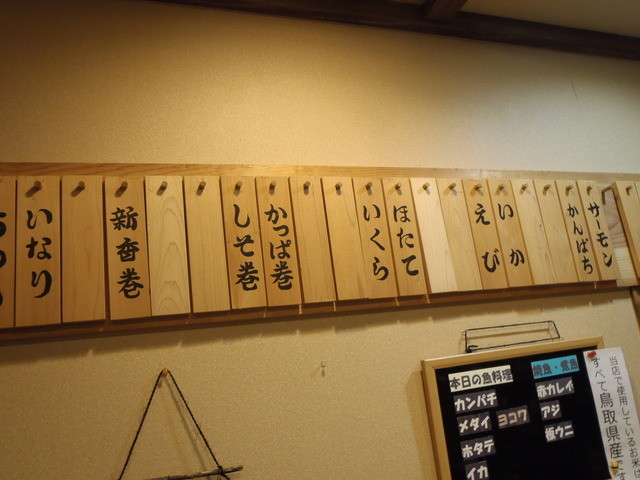 サーモン
かんぱち
いか
えび
ほたて
いくら
かっぱ巻
しそ巻
新香巻
いなり
本日の魚料理
カンパチ
メダイ
ヨコワ
ホタテ
イカ
焼魚・煮魚
赤カレイ
アジ
板ウニ
当店で使用しているお米は
すべて鳥取県産です